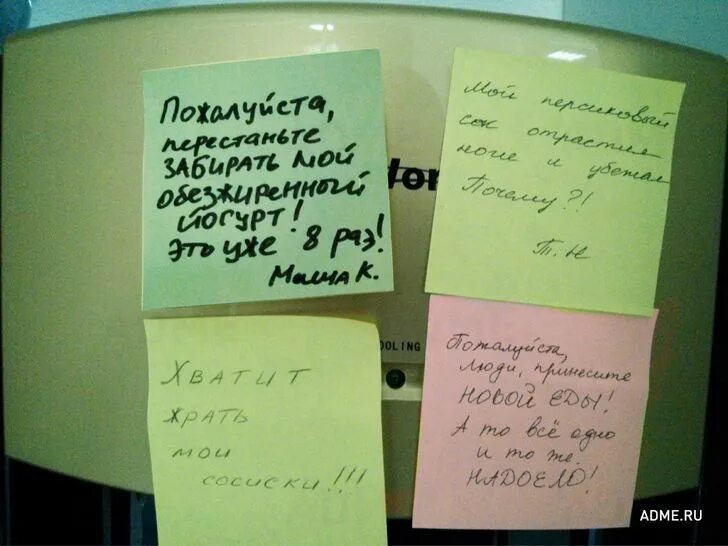 Пожалуйста,
перестаньте
ЗАБИРАТЬ МОЙ
обезжиренный
йогурт!
Это уже 8 раз!
Маша К.
Мой персиковый
сок отрастил
ноги и убежал
Почему?!
Т. Н
Хватит
жрать
мои
сосиски!!!
OOLING
Пожалуйста,
люди, принесите
НОВОЙ ЕДЫ!
А то всё одно
и то же.
НАДОЕЛО!
ADME.RU